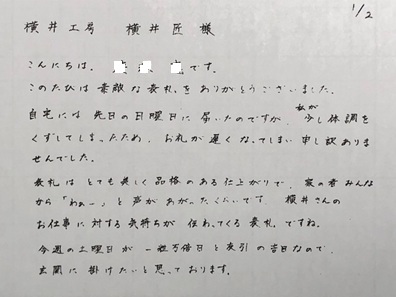 1/2
横井工房 横井匠様
こんにちは。 です。
このたびは素敵な表札をありがとうございました。
自宅には先日の日曜日に届いたのですが、私が少し体調を
くずしてしまったため、お礼が遅くなってしまい申し訳ありま
せんでした。
表札はとても美しく品格のある仕上がりで、家の者みんな
から「わぁー」と声があがったくらいです。 横井さんの
お仕事に対する気持ちが伝わってくる表札ですね。
今週の土曜日が一粒万倍日と の吉日なので、
玄関に掛けたいと思っております。